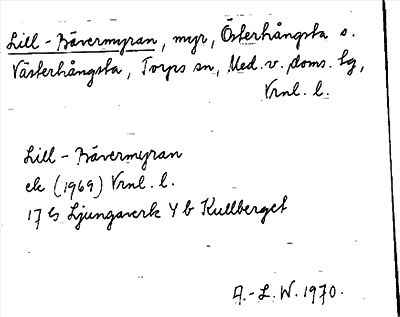 Lill-Bävermyran, myr, Österhångsta o.
Västerhångsta, Torps sn, Med. v. doms. tg,
Vrnl. l.
Lill-Bävermyran
ek (1969) Vrnl. l.
17 G Ljungaverk 4 b Kullberget
A.-L. W. 1970.